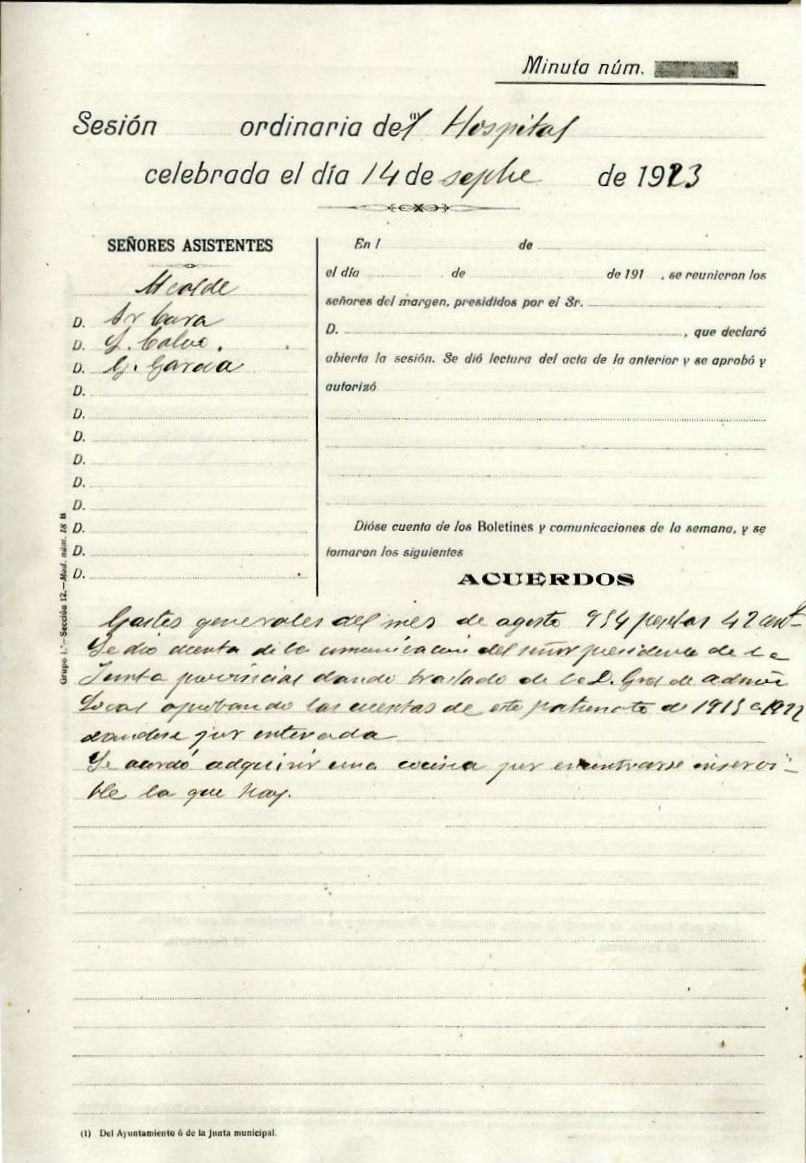 Minuta núm.
Sesión ordinaria de(1)l Hospital
celebrada el día 14 de sepbre de 1923
SEÑORES ASISTENTES
Alcalde
D. Sr Cura
D. S. Calvo.
D. G. Garcia
D.
D.
D.
D.
D.
D.
D.
D.
D.
En l de
el día de de 191 , se reunieron los
señores del margen, presididos por el Sr.
D. , que declaró
abierta la sesión. Se dió lectura del acta de la anterior y se aprobó y
autorizó
Dióse cuenta de los Boletines y comunicaciones de la semana, y se
tomaron los siguientes
ACUERDOS
Gastos generales del mes de agosto 954 pesetas 42 cent
Se dio cuenta de la comunicacion del señor presidente de la
Junta provincial dando traslado de la D. Gral de admon
Local aprobando las cuentas de este patronato de 1915 a 1922
dandose por enterada
Se acordó adquirir una cocina por encontrarse inservi-
ble la que hay.
Grupo 1.º—Sección 12.—Mod. núm. 18 B
(1) Del Ayuntamiento ó de la Junta municipal.